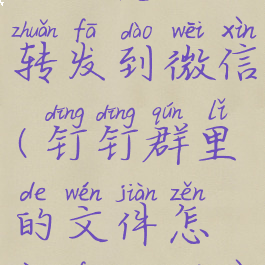 zhuǎn fā dào wēi xìn
转发到微信
dīng dīng qún lǐ
(钉钉群里
de wén jiàn zěn
的文件怎